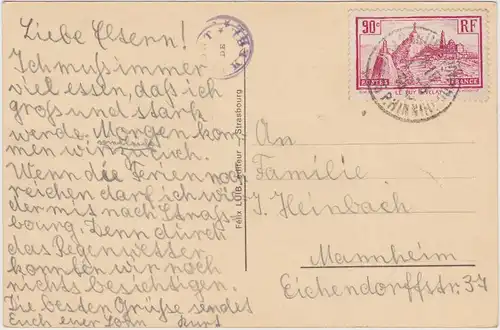 Liebe Eltern!
Ich muß immer
viel essen, daß ich
groß und stark
werde. Morgen kom-
men wir zu euch.
Wenn die Ferien noch
reichen darf ich wie
der mit nach Straß
bourg. Denn durch
das Regenwetter
konnten wir noch
nichts besichtigen.
Die besten Grüße sendet
Euch euer Sohn Kurt
Félix LUIB, Editeur Strasbourg
90c RF
POSTES FRANCE
LE PUY EN VELAY
An
Familie
J. Heinbach
Mannheim
Eichendorffstr. 37